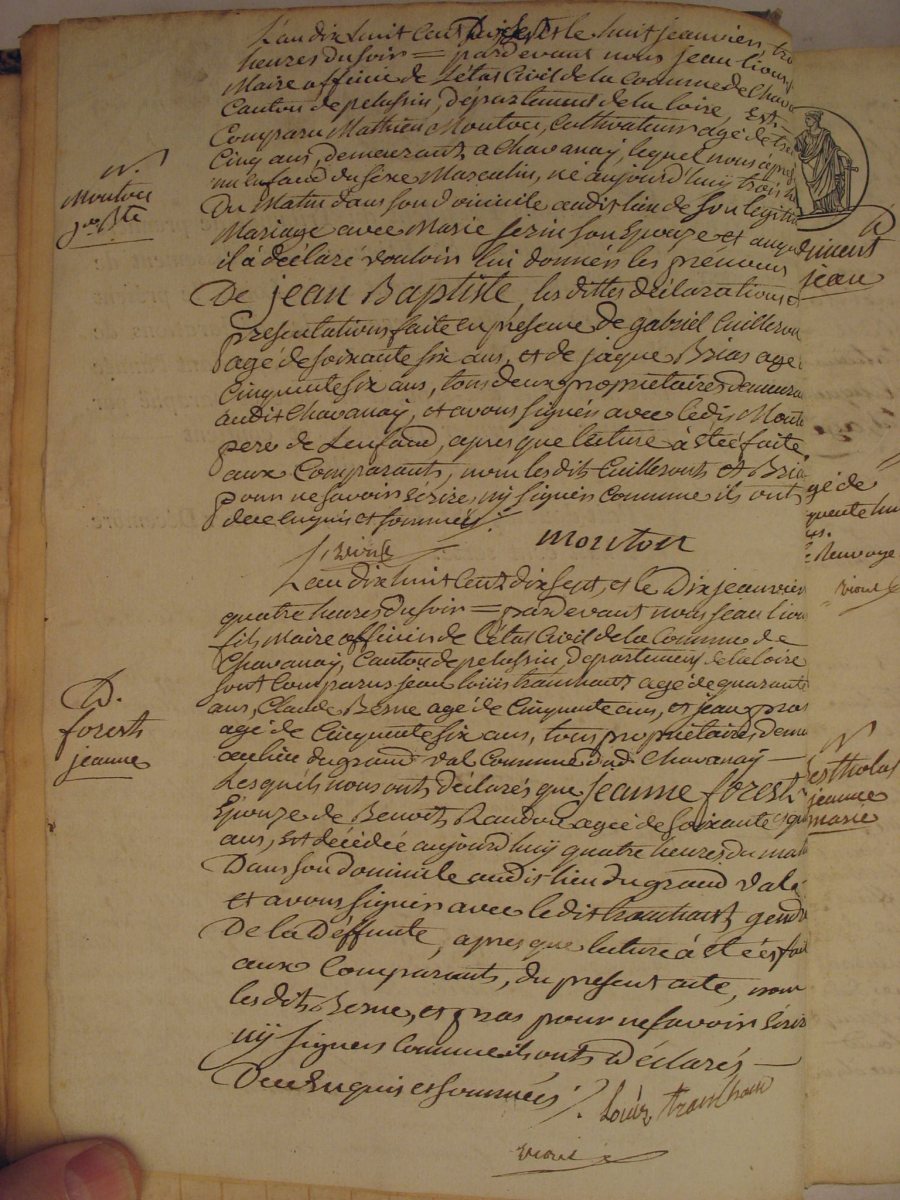 L'an dix huit cent dix sept et le huit jeanvier, tro
heures du soir = pardevant nous jean
Maire officié de L'état Civil de la Commune de Chava
Canton de pelussin, département de la loire, Est
Comparu Mathieu Moutou, Cultivateur agé de tre
Cinq ans, demeurant a Chavanay, lequel nous à pres
un enfand du séxe Masculin, né aujourd'huy trois h
Du Matin dans son domicile audit lieu de Son legiti
Mariage avec Marie Son Epouze et auqu
il a déclaré vouloir lui donner les prenoms
De jean Baptiste, les dittes déclarations e
présentations faite en présence de gabriel Cuilleron
agé de soixante six ans, et de jaque Brias agé
Cinquante six ans, tous deux propriétaires demeura
audit Chavanay, et avons signés avec ledit Mout
pere de Lenfand, apres que lecture à étéé faite
aux Comparants, non les dits Cuilleronts et Bria
pour ne savoir écrire, ny signer comme ils ont
de ce enquis et sommés
mouton
L'an dix huit cent dix sept, et le Dix jeanvier
quatre heures du soir = pardevant nous jean
fils Maire officier de L'état Civil de la Commune de
Chavanay, Canton de pelussin, département de la loire
sont Comparus jean louis tranchant agé de quarante
ans, Claude Besne agé de Cinquante ans, et jean gras
agé de Cinquente six ans, tous propriétaires deme
au lieu du grand val Commune dud. Chavanay —
Lesquéls nous ont déclarés que jeanne forest
Epouze de Benoit agée de soixante
ans, Est décédée aujourd'huy quatre heures du mat
Dans son domicile audit lieu du grand val
et avons signés avec ledit tranchant, gend
De la Déffunte, apres que lecture à étéés fai
aux Comparants, du présent acte, non
les dits Besne, et gras pour ne savoir écrir
ny signers comme ils onts Déclarés —
De ce Enquis et sommés
Louis tranchant
N.
Moutou
jn. Bte
D.
forest
jeanne
D
jean
agé de
Renvoye
N
jeanne
marie